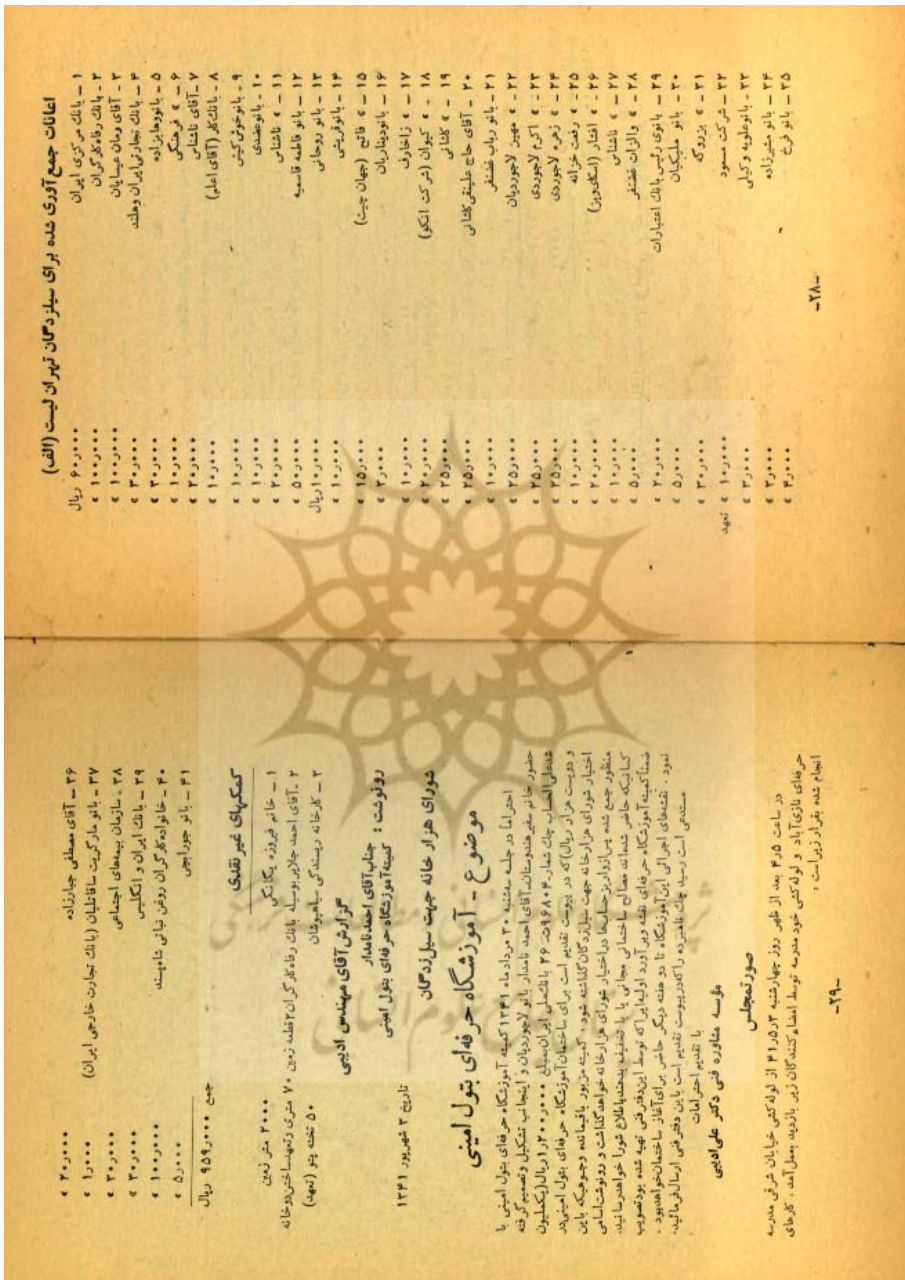 اعانات جمع آوری شده برای سیلزدگان تهران لیست (الف)
۱ ــ بانك مرکزی ایران ۶۰٫۰۰۰ ریال
۲ ـ بانك رفاه کارگران ۱۰۰٫۰۰۰ »
۳ ـ آقای ومان عیسایان ۱۰۰٫۰۰۰ »
۴ ــ بانك تجارتی ایران وهلند ۳۰٫۰۰۰ »
۵ ـ بانو وهابزاده ۳۰٫۰۰۰ »
۶ ــ » فرهنگی ۱۰٫۰۰۰ »
۷ ــ آقای ناشناس ۲۰٫۰۰۰ »
۸ ـ بانك کار (آقای اعلم) ۱۰٫۰۰۰ »
۹ ـ بانو خوش کیش ۱۰٫۰۰۰ »
۱۰ ـ بانو صمدی ۱۰٫۰۰۰ »
۱۱ ـ » ناشناس ۲۰٫۰۰۰ »
۱۲ ــ بانو فاطمه قاسمیه ۵۰٫۰۰۰ »
۱۳ ــ بانو روحانی ۱۰٫۰۰۰ ریال
۱۴ ــ بانو قریشی ۱۰٫۰۰۰ »
۱۵ ــ » فاتح (جهان چیت) ۱۵٫۰۰۰ »
۱۶ ـ بانو دیناریان ۲٫۰۰۰ »
۱۷ ـ » زاخارف ۱۰٫۰۰۰ »
۱۸ ـ » کیوان (شرکت انکو) ۲۰٫۰۰۰ »
۱۹ ـ » کاشانی ۲۵٫۰۰۰ »
۲۰ ــ آقای حاج علینقی کاشانی ۲۵٫۰۰۰ »
۲۱ ــ بانو رباب غضنفر ۱۰٫۰۰۰ »
۲۲ ـ » مهین لاجوردیان ۲۵٫۰۰۰ »
۲۳ ـ » اکرم لاجوردی ۲۵٫۰۰۰ »
۲۴ ـ » زهره لاجوردی ۲۵٫۰۰۰ »
۲۵ ـ » رفعت خزانه ۱۰٫۰۰۰ »
۲۶ ـ » افشار (اسکی ویز) ۲۰٫۰۰۰ »
۲۷ ــ » ناشناس ۱۰٫۰۰۰ »
۲۸ ـ » والزات غضنفر ۵٫۰۰۰ »
۲۹ ــ بانوی رئیس بانك اعتبارات ۲۰٫۰۰۰ »
۳۰ ـ بانو ملیکیان ۵٫۰۰۰ »
۳۱ ـ » بزروگه ۳۰٫۰۰۰ »
۳۲ ــ شرکت مسعود ۱۰٫۰۰۰ » تعهد
۳۳ ـ بانو علویه وکیلی ۳٫۰۰۰ »
۳۴ ــ بانو مشیرزاده ۲٫۰۰۰ »
۳۵ ــ بانو فرخ ۴٫۰۰۰ »
ــ۲۸ــ
۳۶ ــ آقای مصطفی جبارزاده ۲۰٫۰۰۰ »
۳۷ ــ بانو مارگریت ساقاتلیان (بانك تجارت خارجی ایران) ۱٫۰۰۰ »
۳۸ ـ سازمان بیمه‌های اجتماعی ۳۰٫۰۰۰ »
۳۹ ــ بانك ایران و انگلیس ۳۰٫۰۰۰ »
۴۰ ــ خانواده کارگران روغن نباتی شاه‌پسند ۱۰۰٫۰۰۰ »
۴۱ ــ بانو جورابچی ۵٫۰۰۰ »
جمع ۹۵۹٫۰۰۰ ریال
کمکهای غیر نقدی
۱ ــ خانم فیروزه یگانگی ۲۰۰۰ متر زمین
۲ ـ آقای احمد جلایر بوسیله بانك رفاه کارگران ۲ قطعه زمین ۷۰ متری وتعهد ساختن دو خانه
۳ ــ کارخانه ریسندگی سیاهپوشان ۵۰ تخته پتو (تعهد)
گزارش آقای مهندس ادیبی
رونوشت : جناب آقای احمد نامدار تاریخ ۳ شهریور ۱۳۴۱
کمیته آموزشگاه حرفه‌ای بتول امینی
شورای هزار خانه جهت سیل زدگان
موضوع ـ آموزشگاه حرفه‌ای بتول امینی
احتراماً در جلسه سه‌شنبه ۳۰ مرداد ماه ۱۳۴۱ کمیته آموزشگاه حرفه‌ای بتول امینی با
حضور خانم سفیر هندوستان، آقای احمد نامدار بانو لاجوردیان و اینجانب تشکیل و تصمیم گرفته
شد علی‌الحساب چك شماره ۹۶۸۰۴ ت ۴۶ بانك ملی ایران بمبلغ ۱٫۲۰۰٫۰۰۰ ریال (یکملیون
و دویست هزار ریال) که در پیوست تقدیم است برای ساختمان آموزشگاه حرفه‌ای بتول امینی در
اختیار شورای هزارخانه جهت سیل‌زدگان گذاشته شود . کمیته مزبور باقیمانده وجوهیکه باین
منظور جمع شده پس از واریز حسابها در اختیار شورای هزارخانه خواهد گذاشت و رونوشت اسامی
کسانیکه حاضر شده‌اند مصالح ساختمانی مجانی یا با تخفیف بدهند باطلاع شورا خواهد رسانید.
ضمناً کمیته آموزشگاه حرفه‌ای نقشه وبرآورد اولیه را که توسط این دفتر فنی تهیه شده بود تصویب
نمود . نقشه‌های اجرائی این آموزشگاه تا دو هفته دیگر حاضر برای آغاز ساختمان خواهد بود .
مستدعی است رسید چك نامبرده را که در پیوست تقدیم است باین دفتر فنی ارسال فرمائید.
با تقدیم احترامات
مؤسسه مشاوره فنی دکتر علی ادیبی
صورتمجلس
در ساعت ۴٫۵ بعد از ظهر روز چهارشنبه ۴۱٫۵٫۳ از لوله کشی خیابان شرقی مدرسه
حرفه‌ای نازی آباد و لوله کشی خود مدرسه توسط امضاء کنندگان زیر بازدید بعمل آمد . کارهای
انجام شده بقرار زیر است :
ــ۲۹ــ